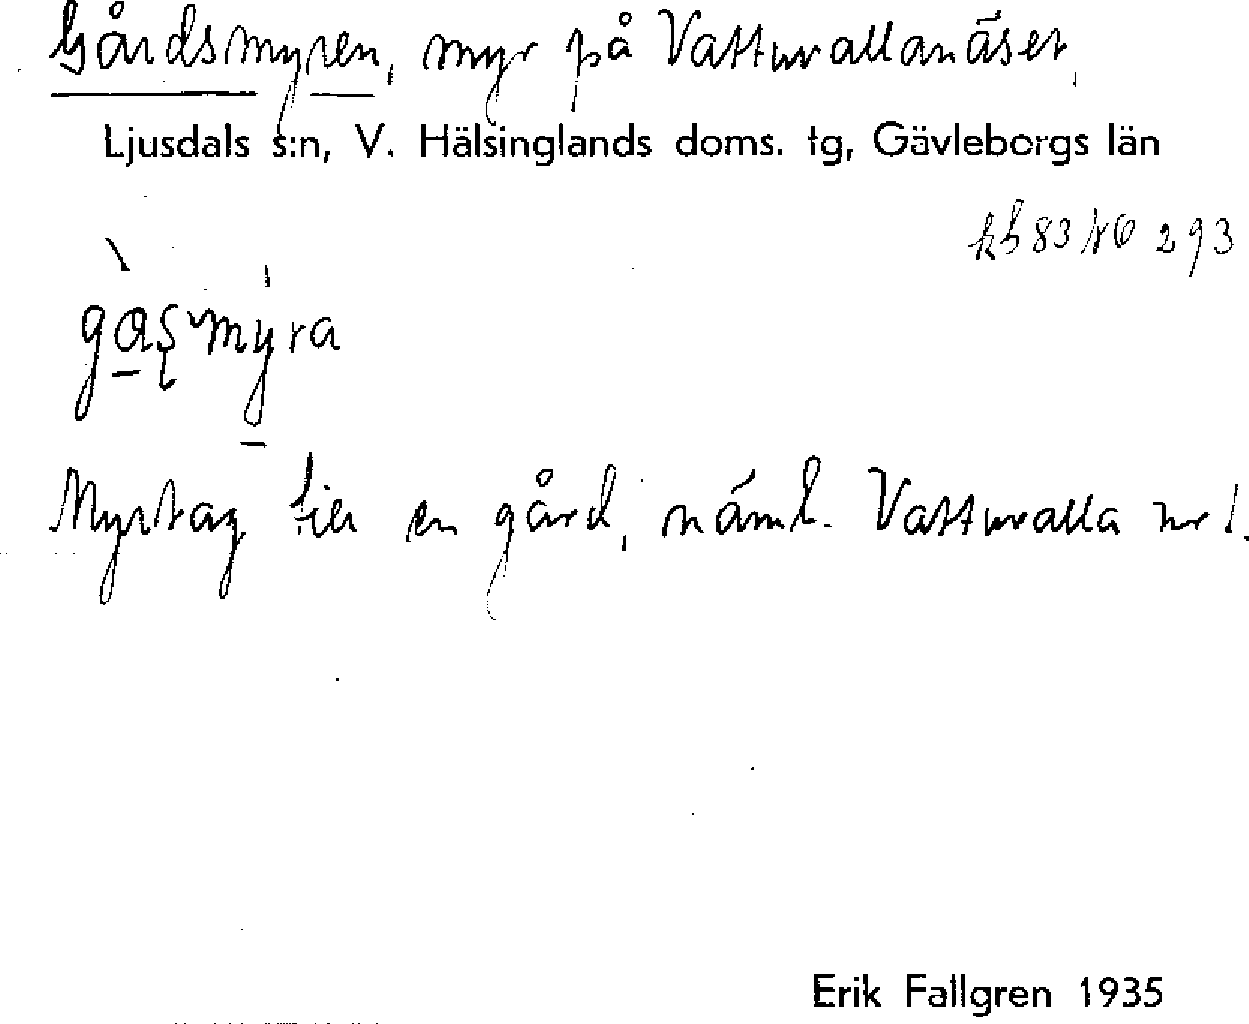 Gårdsmyren, myr på Vatturallanäset,
Ljusdals s:n, V. Hälsinglands doms. tg, Gävleborgs län
kb 83 NO 293
gàʂmýra
Myrtag till en gård, näml. Vatturalla nr 1.
Erik Fallgren 1935